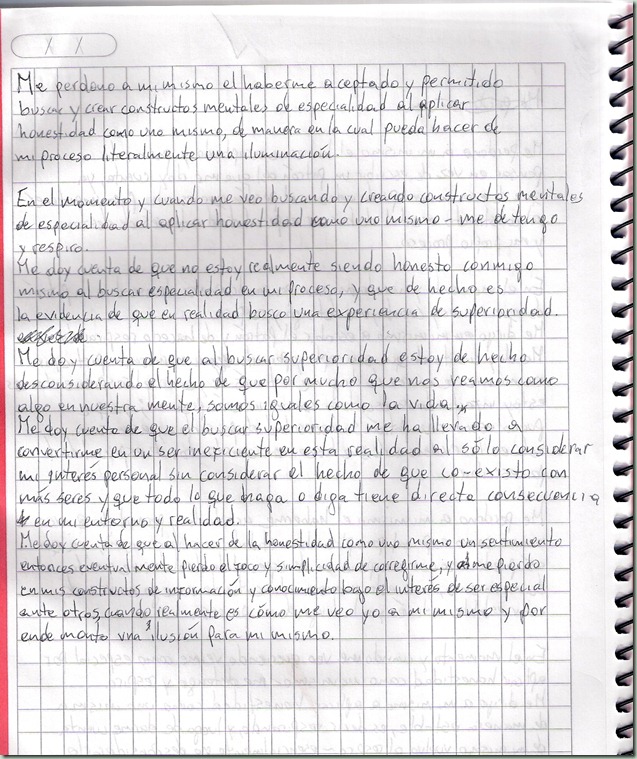 X X
Me perdono a mi mismo el haberme aceptado y permitido
buscar y crear constructos mentales de especialidad al aplicar
honestidad como uno mismo, de manera en la cual pueda hacer de
mi proceso literalmente una iluminación.
En el momento y cuando me veo buscando y creando constructos mentales
de especialidad al aplicar honestidad como uno mismo - me detengo
y respiro.
Me doy cuenta de que no estoy realmente siendo honesto conmigo
mismo al buscar especialidad en mi proceso, y que de hecho es
la evidencia de que en realidad busco una experiencia de superioridad.
Me doy cuenta de que al buscar superioridad estoy de hecho
desconsiderando el hecho de que por mucho que nos veamos como
algo en nuestra mente, somos iguales como la vida.
Me doy cuenta de que el buscar superioridad me ha llevado a
convertirme en un ser ineficiente en esta realidad al sólo considerar
mi interés personal sin considerar el hecho de que co-existo con
más seres y que todo lo que haga o diga tiene directa consecuencia
en mi entorno y realidad.
Me doy cuenta de que al hacer de la honestidad como uno mismo un sentimiento
entonces eventualmente pierdo el foco y simplicidad de corregirme, y me pierdo
en mis constructos de información y conocimiento bajo el interés de ser especial
ante otros, cuando realmente es cómo me veo yo a mi mismo y por
ende monto una ilusión para mi mismo.